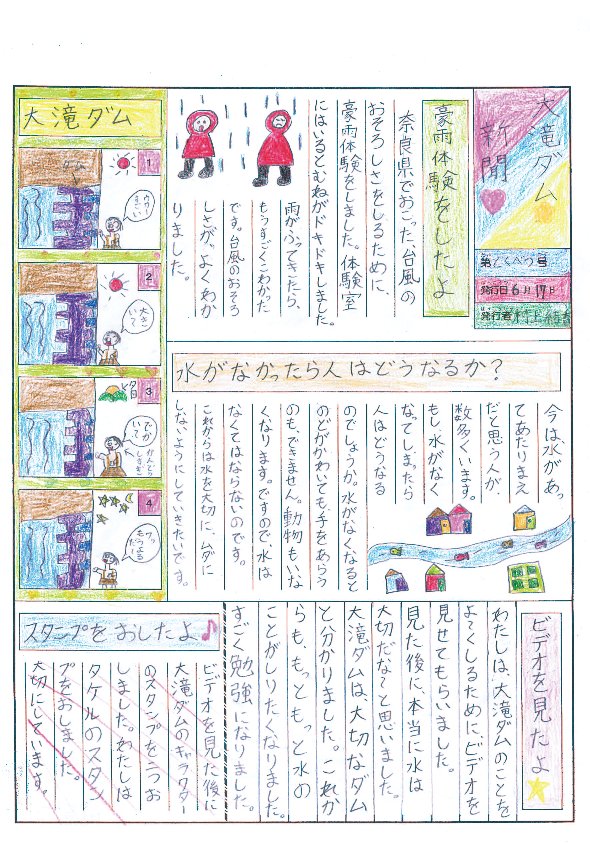 大滝ダム
新聞
第とくべつ号
発行日6月17日
発行者
豪雨体験をしたよ
奈良県でおこった、台風の
おそろしさをしるために、
豪雨体験をしました。体験室
にはいるとむねがドキドキしました。
雨がふってきたら、
もうすごくこわかった
です。台風のおそろ
しさが、よくわか
りました。
大滝ダム
1
2
3
4
水がなかったら人はどうなるか?
今は、水があっ
てあたりまえ
だと思う人が、
数多くいます。
もし、水がなく
なってしまったら
人はどうなる
のでしょうか。水がなくなると
のどがかわいても、手をあらう
のも、できません。動物もいな
くなります。ですので、水は
なくてはならないのです。
これからは水を大切に、ムダに
しないようにしていきたいです。
ビデオを見たよ
わたしは、大滝ダムのことを
よ〜くしるために、ビデオを
見せてもらいました。
見た後に、本当に水は
大切だな〜と思いました。
大滝ダムは、大切なダム
と分かりました。これか
らも、もっともっと水の
ことがしりたくなりました。
すごく勉強になりました。
スタンプをおしたよ♪
ビデオを見た後に
大滝ダムのキャラクター
のスタンプを二つお
しました。わたしは
タケルのスタン
プをおしました。
大切にしています。